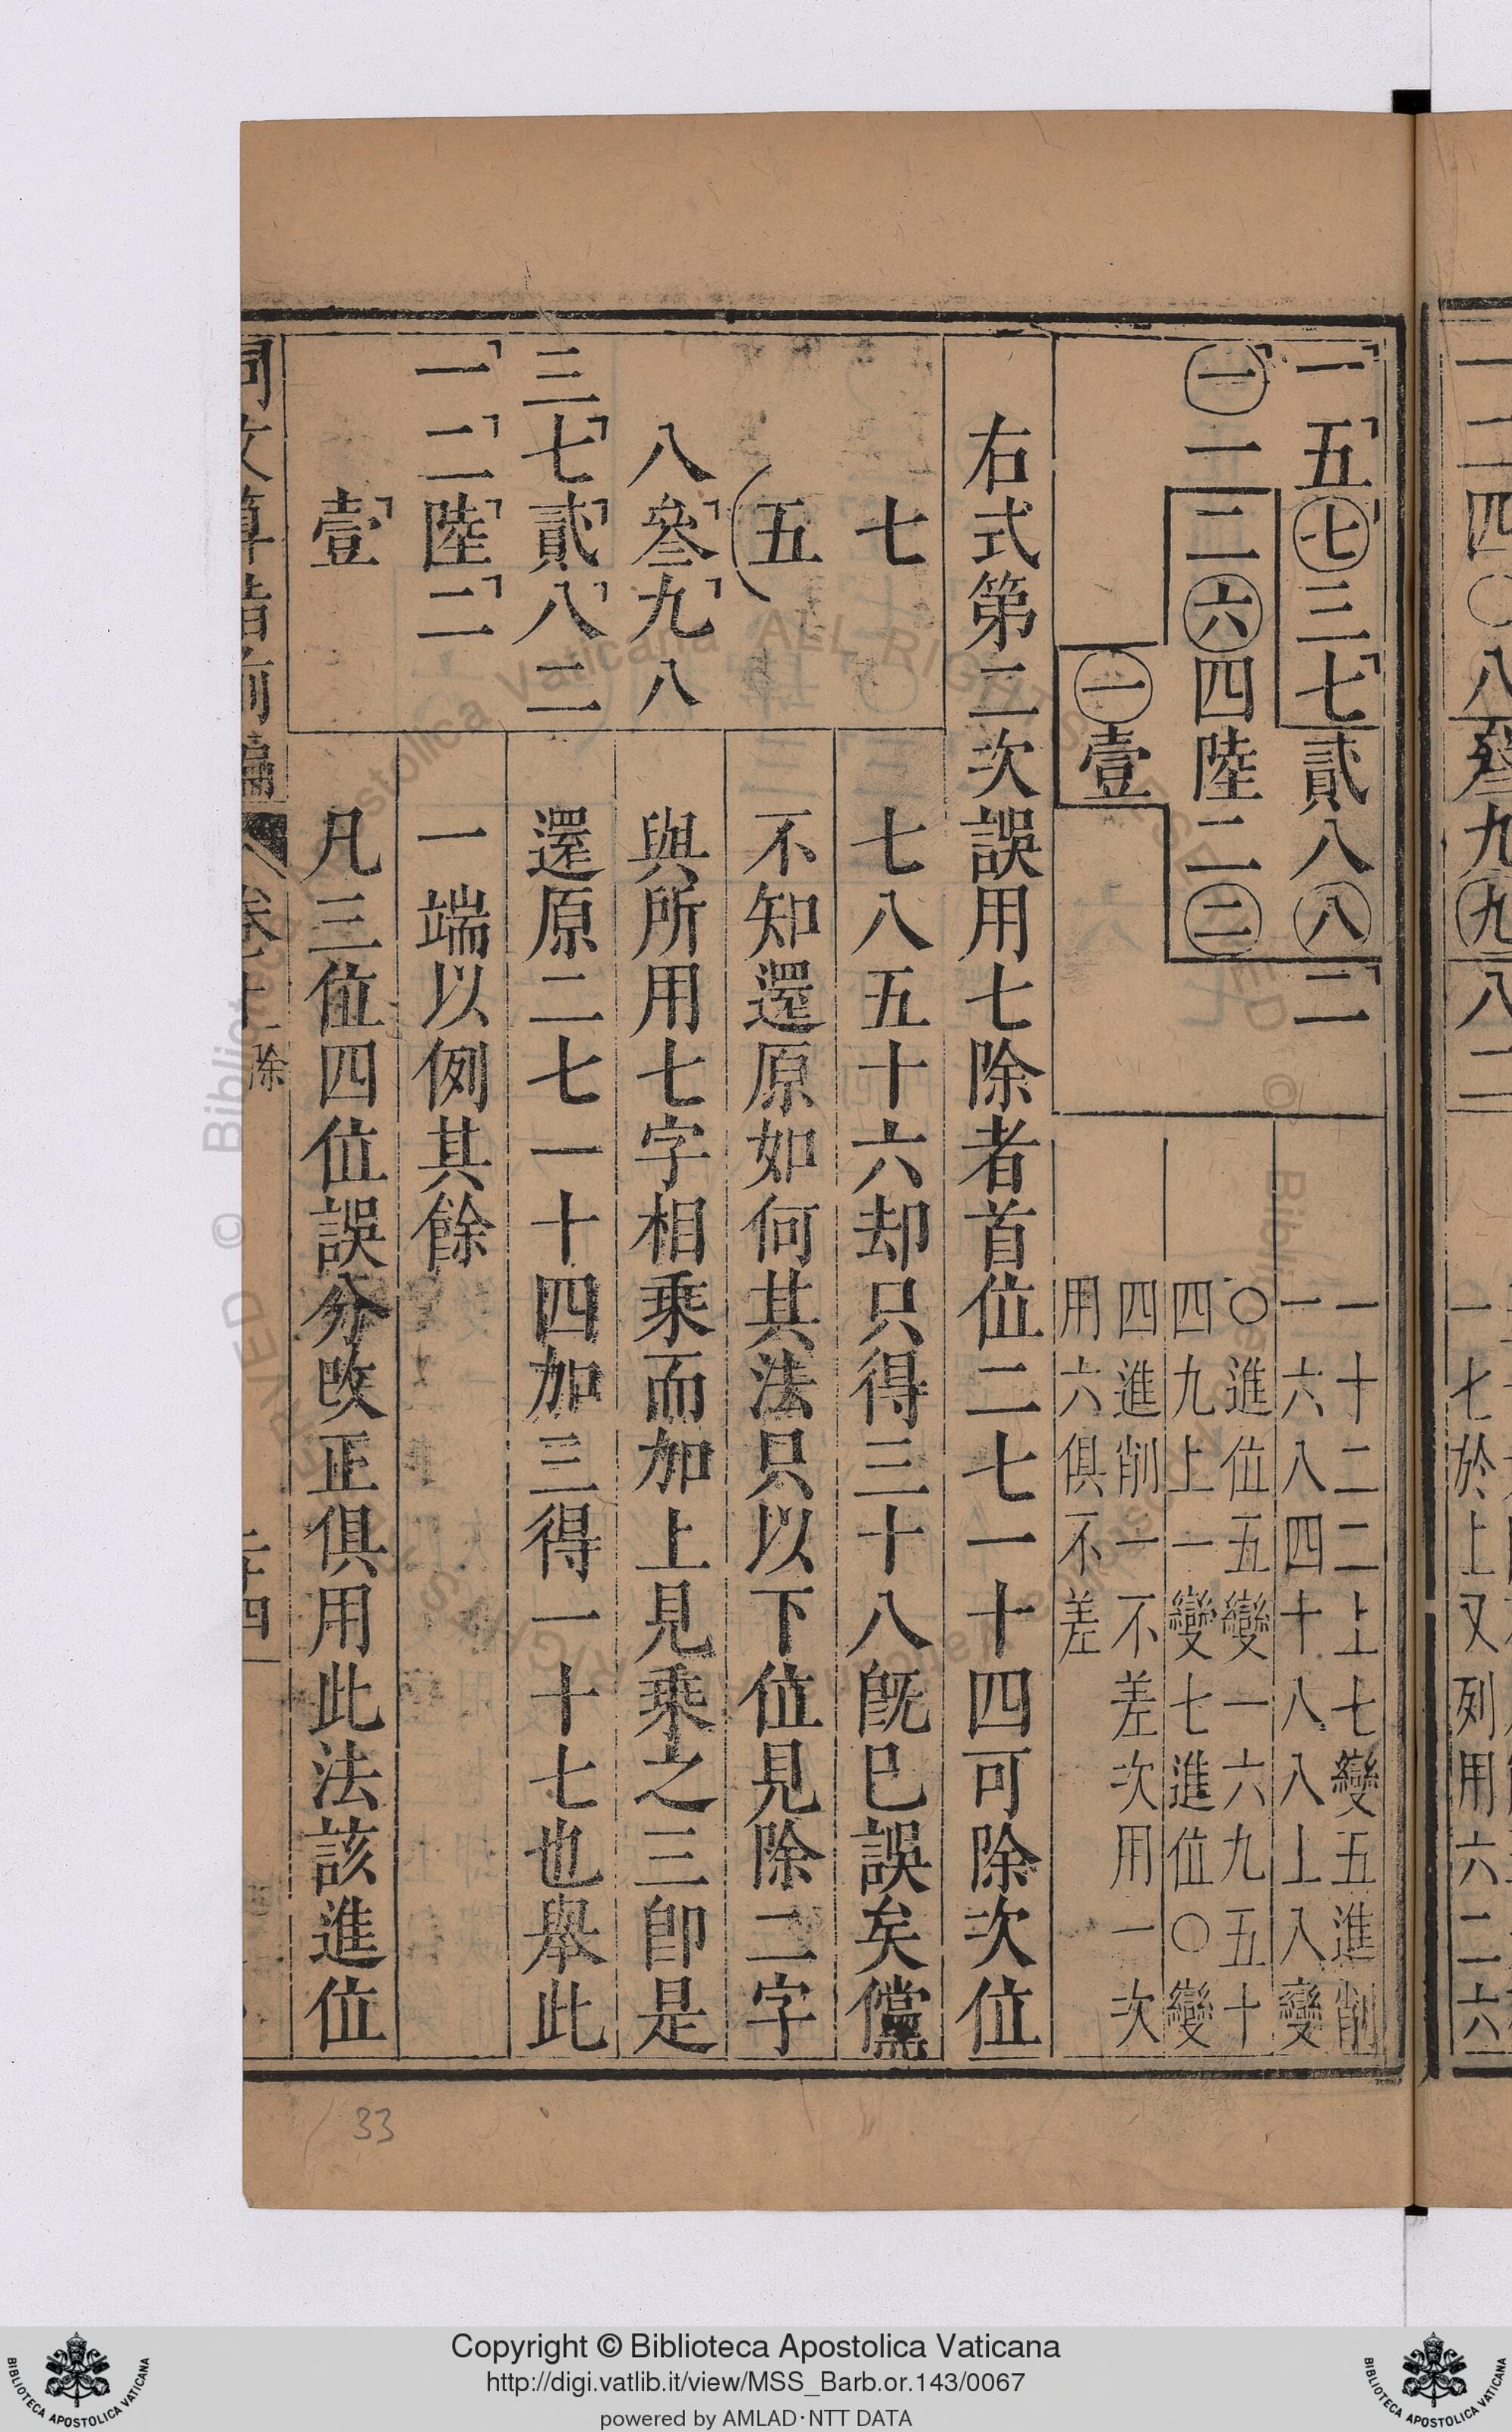 一五七三七貳八八二
一一二六四陸二二
一壹
一十二二上七變五進削
一六八四十八八上入變
〇進位五變一六九五十
四九上一變七進位〇變
四進削一不差次用一次
用六俱不差
右式第二次誤用七除者首位二七一十四可除次位
七
七八五十六却只得三十八旣巳誤矣儻
五
不知還原如何其法只以下位見除二字
八叄九八
與所用七字相乘而加上見乘之三卽是
三七貳八二
還原二七一十四加三得一十七也舉此
一二陸二
一端以例其餘
壹
凡三位四位誤分改正俱用此法該進位
同文算指前編
除
33
Copyright © Biblioteca Apostolica Vaticana
http://digi.vatlib.it/view/MSS_Barb.or.143/0067
powered by AMLAD·NTT DATA
BIBLIOTECA APOSTOLICA VATICANA
BIBLIOTECA APOSTOLICA VATICANA